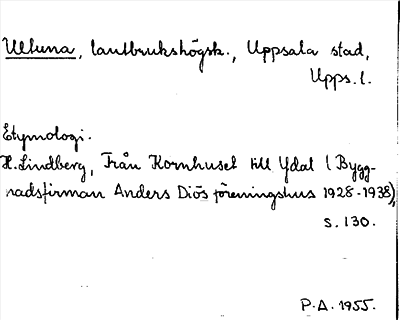 Ultuna, lantbrukshögsk., Uppsala stad,
Upps. l.
Etymologi.
H. Lindberg, Från Kornhuset till Ydal (Bygg-
nadsfirman Anders Diös föreningshus 1928-1938),
s. 130.
P.A. 1955.